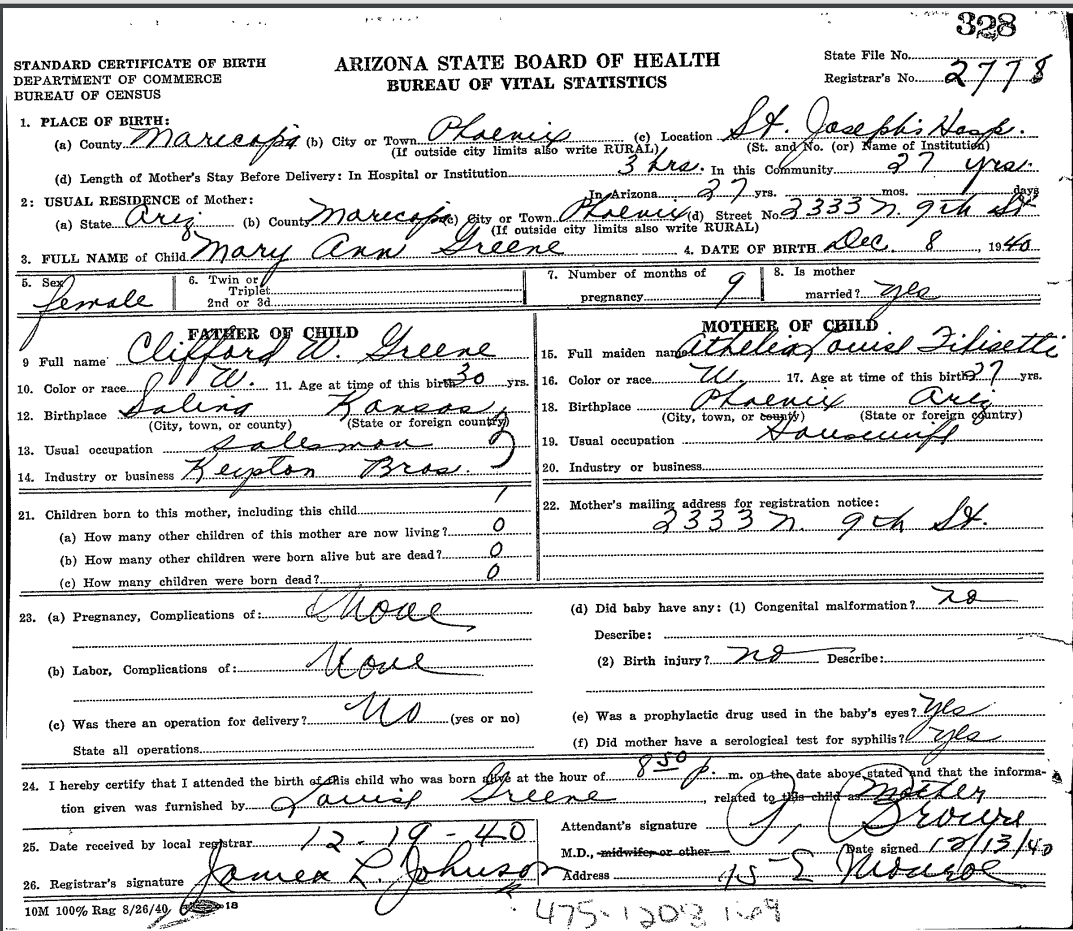 328
STANDARD CERTIFICATE OF BIRTH
DEPARTMENT OF COMMERCE
BUREAU OF CENSUS
ARIZONA STATE BOARD OF HEALTH
BUREAU OF VITAL STATISTICS
State File No.
Registrar's No. 2778
1. PLACE OF BIRTH:
(a) County Maricopa (b) City or Town Phoenix (c) Location St. Joseph's Hosp.
(If outside city limits also write RURAL) (St. and No. (or) Name of Institution)
(d) Length of Mother's Stay Before Delivery: In Hospital or Institution 3 hrs. In this Community 27 yrs.
In Arizona 27 yrs. mos. days
2: USUAL RESIDENCE of Mother:
(a) State Ariz (b) County Maricopa (c) City or Town Phoenix (d) Street No. 2333 N. 9th St
(If outside city limits also write RURAL)
3. FULL NAME of Child Mary Ann Greene 4. DATE OF BIRTH Dec. 8, 1940
5. Sex female
6. Twin or Triplet 2nd or 3d
7. Number of months of pregnancy 9
8. Is mother married? yes
FATHER OF CHILD
9 Full name Clifford W. Greene
10. Color or race W. 11. Age at time of this birth 30 yrs.
12. Birthplace Salina Kansas
(City, town, or county) (State or foreign country)
13. Usual occupation salesman
14. Industry or business Bros.
MOTHER OF CHILD
15. Full maiden name Louise Filisetti
16. Color or race W 17. Age at time of this birth 27 yrs.
18. Birthplace Phoenix Ariz
(City, town, or county) (State or foreign country)
19. Usual occupation Housewife
20. Industry or business
21. Children born to this mother, including this child 1
(a) How many other children of this mother are now living? 0
(b) How many other children were born alive but are dead? 0
(c) How many children were born dead? 0
22. Mother's mailing address for registration notice:
2333 N. 9th St.
23. (a) Pregnancy, Complications of: None
(b) Labor, Complications of: None
(c) Was there an operation for delivery? No (yes or no)
State all operations
(d) Did baby have any: (1) Congenital malformation? no
Describe:
(2) Birth injury? no Describe:
(e) Was a prophylactic drug used in the baby's eyes? yes
(f) Did mother have a serological test for syphilis? yes
24. I hereby certify that I attended the birth of this child who was born alive at the hour of 8 50 p. m. on the date above stated and that the informa-
tion given was furnished by Louise Greene, related to this child as Mother
25. Date received by local registrar 12-19-40
26. Registrar's signature James L. Johnson
Attendant's signature
M.D., midwife or other Date signed 12/13/40
Address 15 E Monroe
10M 100% Rag 8/26/40 18
475-1203